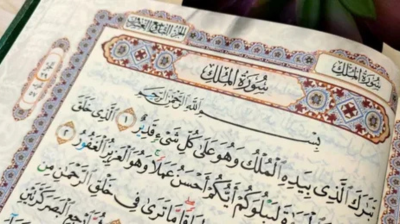 سُورَةُ المُلْكِ
سُورَةُ المُلْكِ
بِسْمِ اللَّهِ الرَّحْمَٰنِ الرَّحِيمِ
تَبَارَكَ الَّذِي بِيَدِهِ الْمُلْكُ وَهُوَ عَلَىٰ كُلِّ شَيْءٍ قَدِيرٌ ١ الَّذِي خَلَقَ
لِيَبْلُوَكُمْ أَيُّكُمْ أَحْسَنُ عَمَلًا وَهُوَ الْعَزِيزُ الْغَفُورُ ٢
مَا تَرَىٰ فِي خَلْقِ الرَّحْمَٰنِ مِنْ
ارْجِعِ الْبَصَرَ كَرَّتَيْنِ